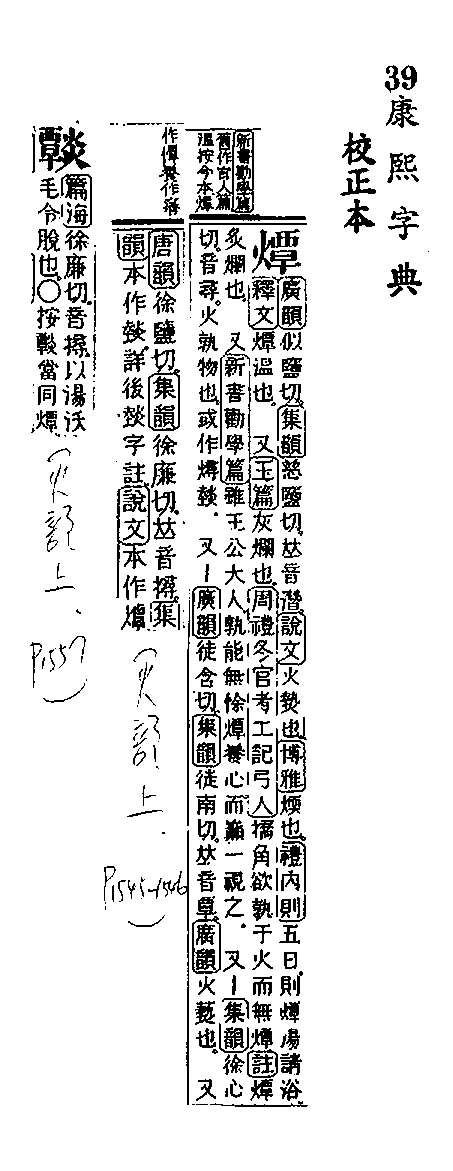 39康熙字典
校正本
新書勸學篇
舊作官人篇
溫按今本燂
燂
廣韻似鹽切集韻慈鹽切𠀤音潛說文火熱也博雅煗也禮內則五日則燂湯請浴
釋文燂溫也 又玉篇灰爛也周禮冬官考工記弓人撟角欲孰于火而無燂註燂
炙爛也 又新書勸學篇雖王公大人孰能無悇燂養心而巓一視之 又丨集韻徐心
切音尋火孰物也或作燖燅 又丨廣韻徒含切集韻徒南切𠀤音覃廣韻火爇也 又
作憚養作癢
唐韻徐鹽切集韻徐廉切𠀤音撏集
韻本作燅詳後燅字註說文本作燂
(火部上.
P1545-1546)
篇海徐廉切音撏以湯沃
毛令脫也○按當同燂
(火部上.
P1557)